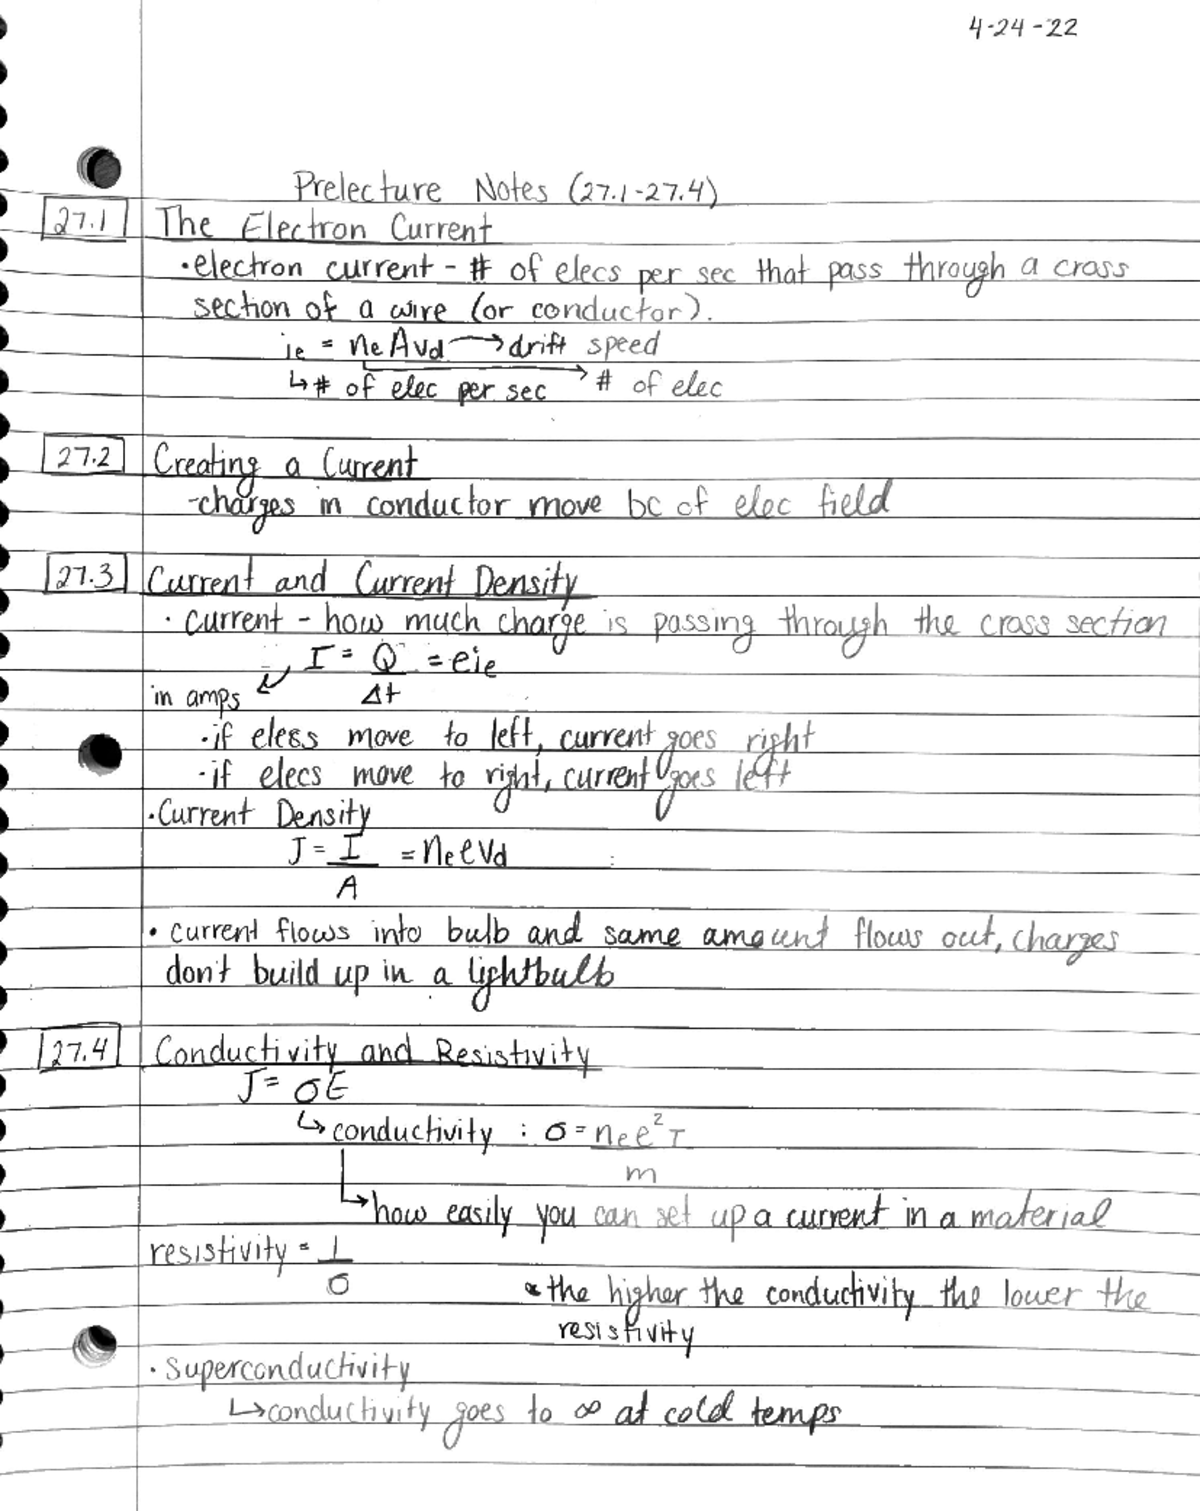 4-24-22
Prelecture Notes (27.1-27.4)
27.1 The Electron Current
•electron current - # of elecs per sec that pass through a cross
section of a wire (or conductor).
ie = neAvd → drift speed
↳# of elec per sec → # of elec
27.2 Creating a Current
-charges in conductor move bc of elec field
27.3 Current and Current Density
• current - how much charge is passing through the cross section
I = Q = eie
in amps ↙ Δt
•if elecs move to left, current goes right
•if elecs move to right, current goes left
•Current Density
J = I = neevd
A
• current flows into bulb and same amount flows out, charges
don't build up in a lightbulb
27.4 Conductivity and Resistivity
J = σE
↳ conductivity : σ = nee²τ
m
↳ how easily you can set up a current in a material
resistivity = 1
σ
* the higher the conductivity the lower the
resistivity
• Superconductivity
↳ conductivity goes to ∞ at cold temps